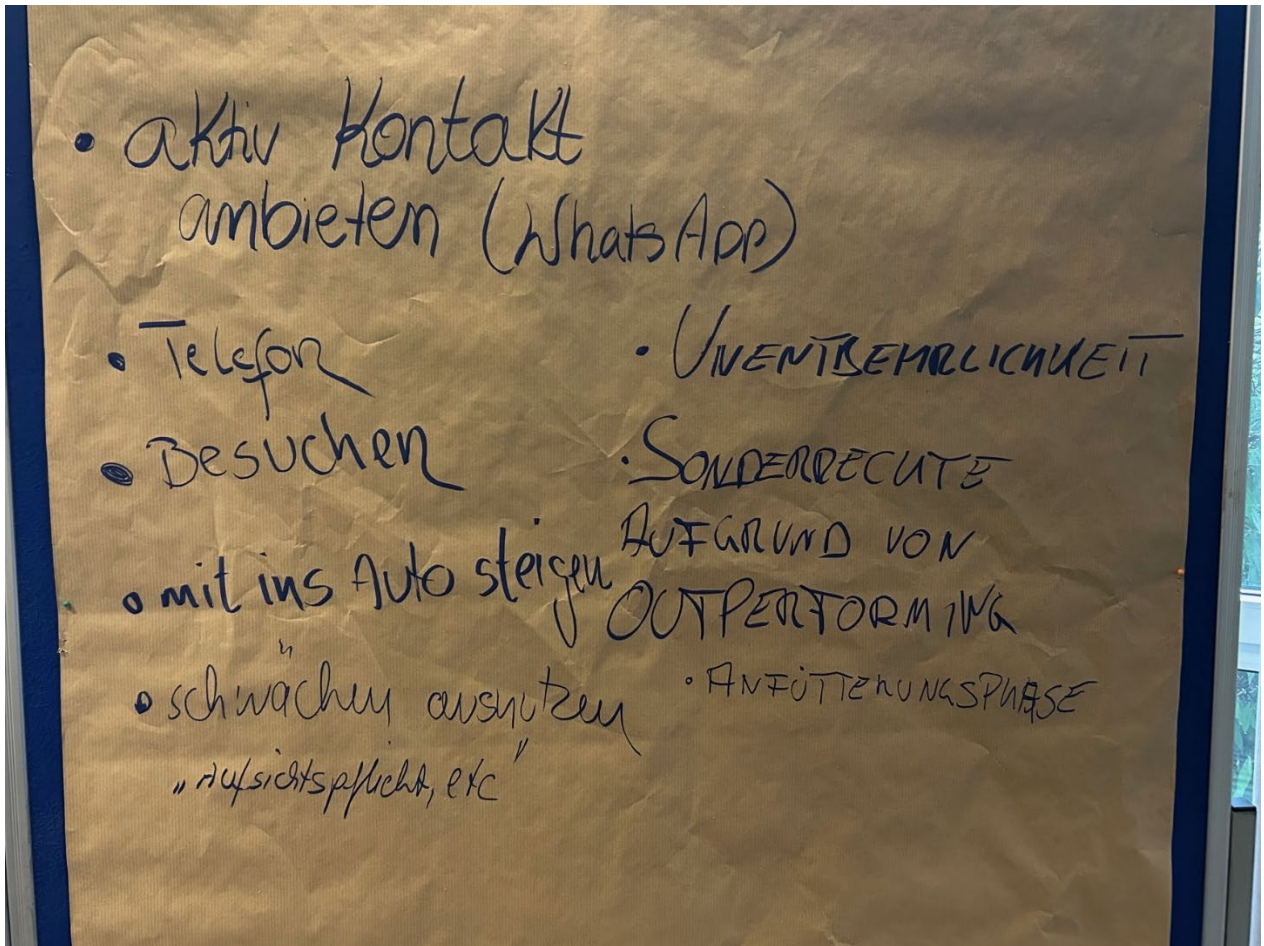 • aktiv Kontakt
anbieten (WhatsApp)
• Telefon
• Besuchen
• mit ins Auto steigen
• schwächen ausnutzen
„Aufsichtspflicht, etc"
• UNENTBEHRLICHKEIT
• SONDERRECHTE
AUFGRUND VON
OUTPERFORMING
• ANFÜTTERUNGSPHASE